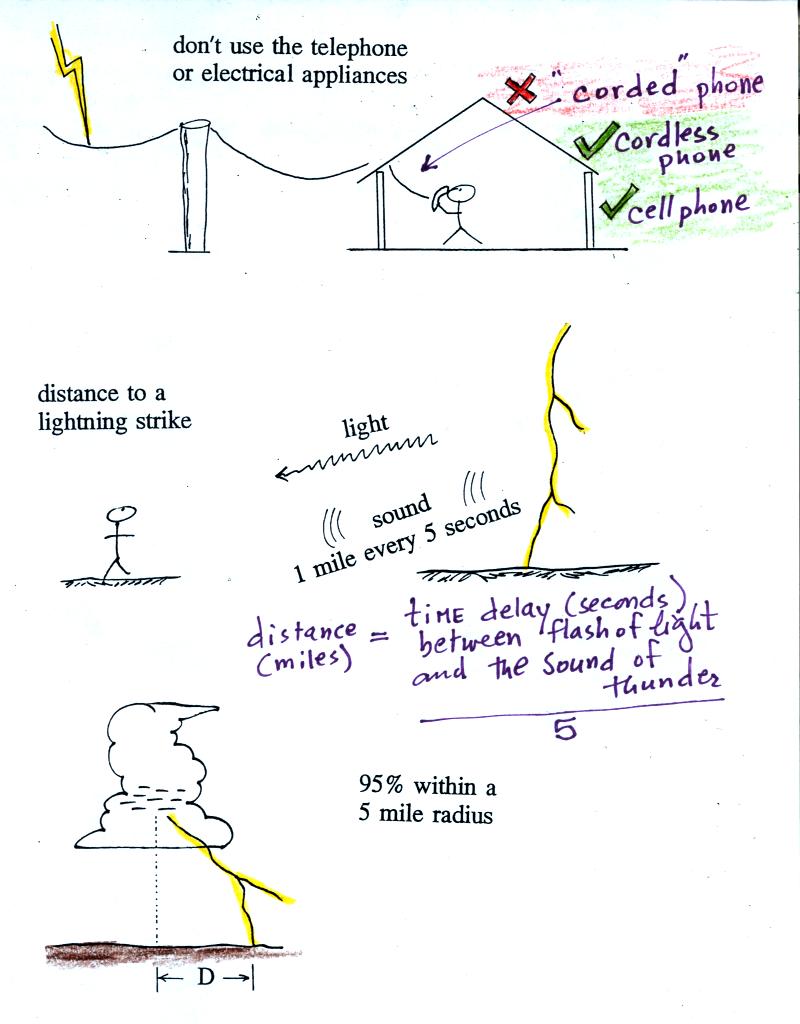 don't use the telephone
or electrical appliances
"corded" phone
cordless
phone
cell phone
distance to a
lightning strike
light
sound
1 mile every 5 seconds
distance
(miles)
=
time delay (seconds)
between flash of light
and the sound of
thunder
5
95% within a
5 mile radius
D